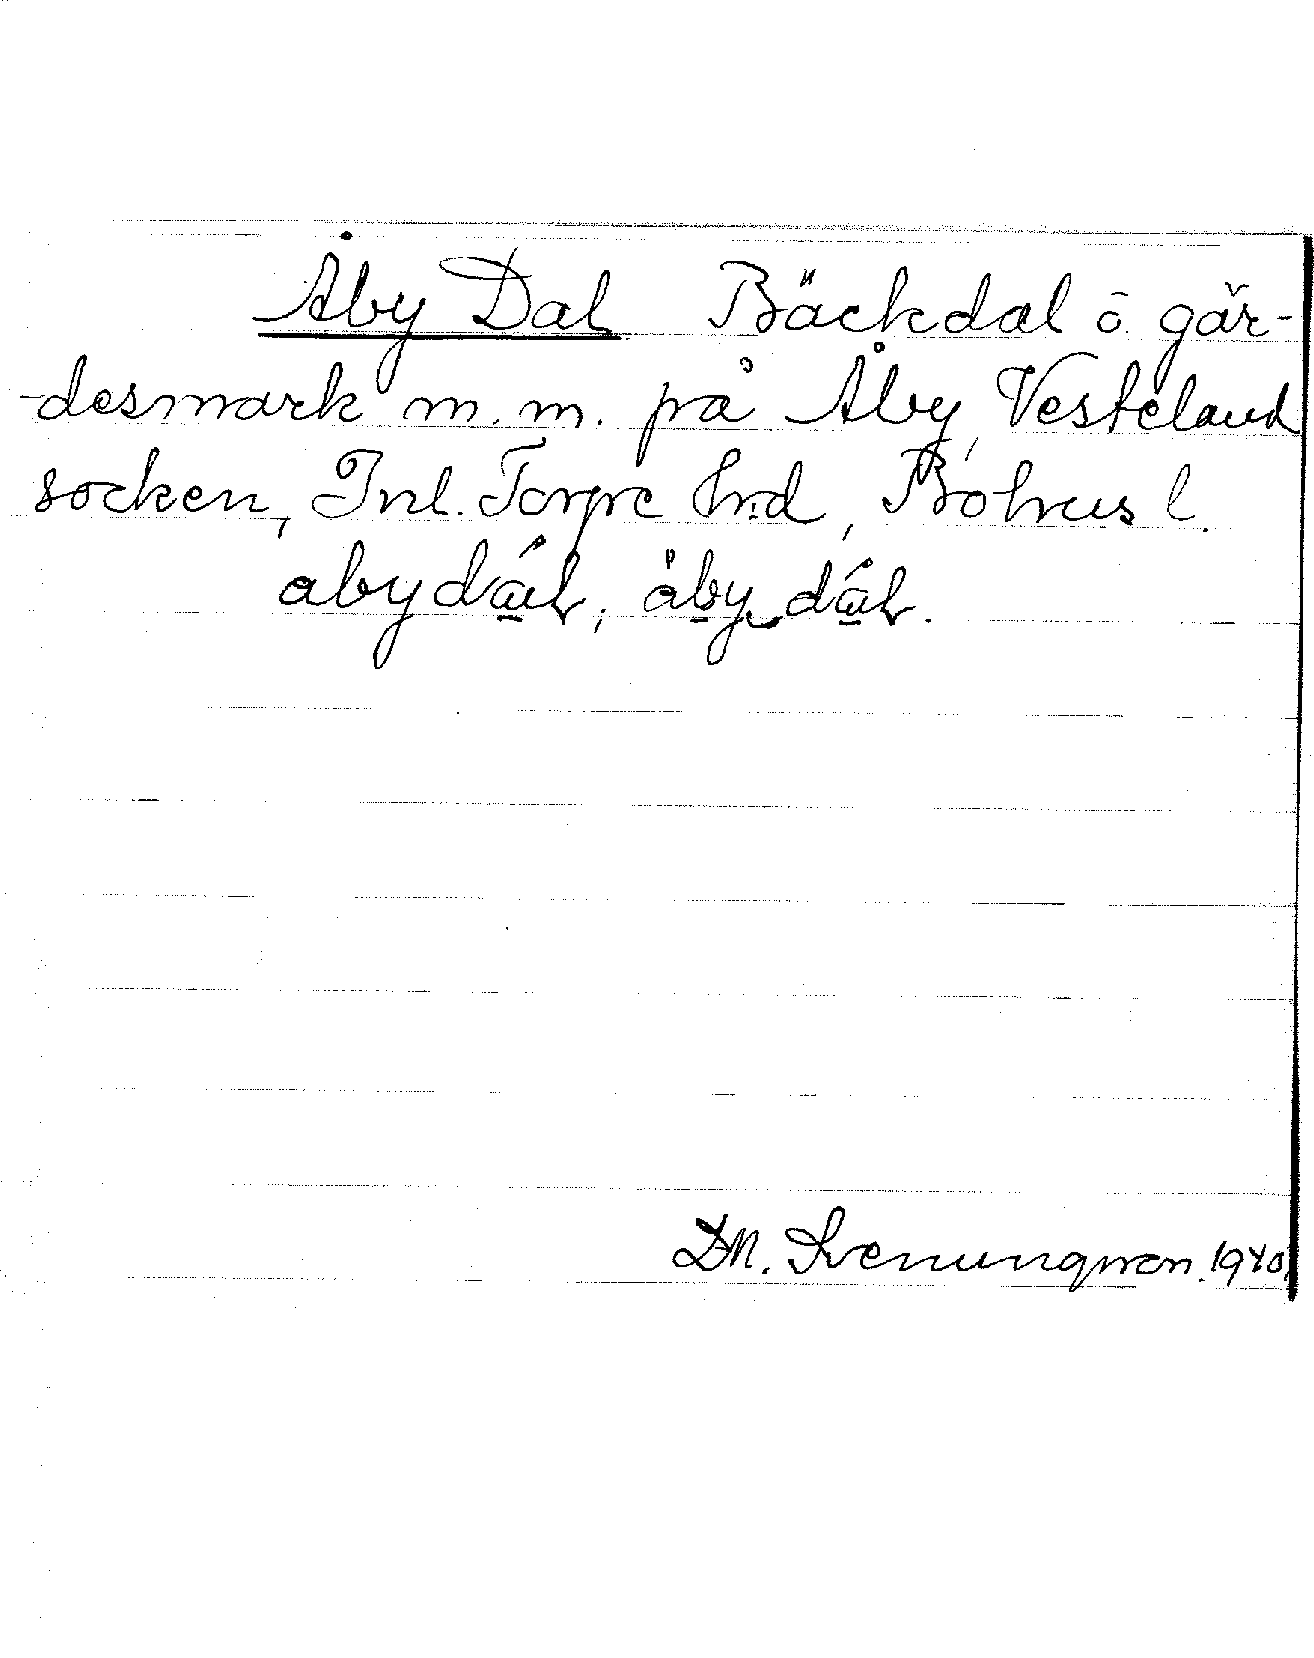 Åby Dal Bäckdal ö. gär-
-desmark m.m. på Åby, Vesteland
socken, Inl. Torpe Hrd, Bohus l.
abydál, åby dál.
D.M. Svenungsson. 1940.